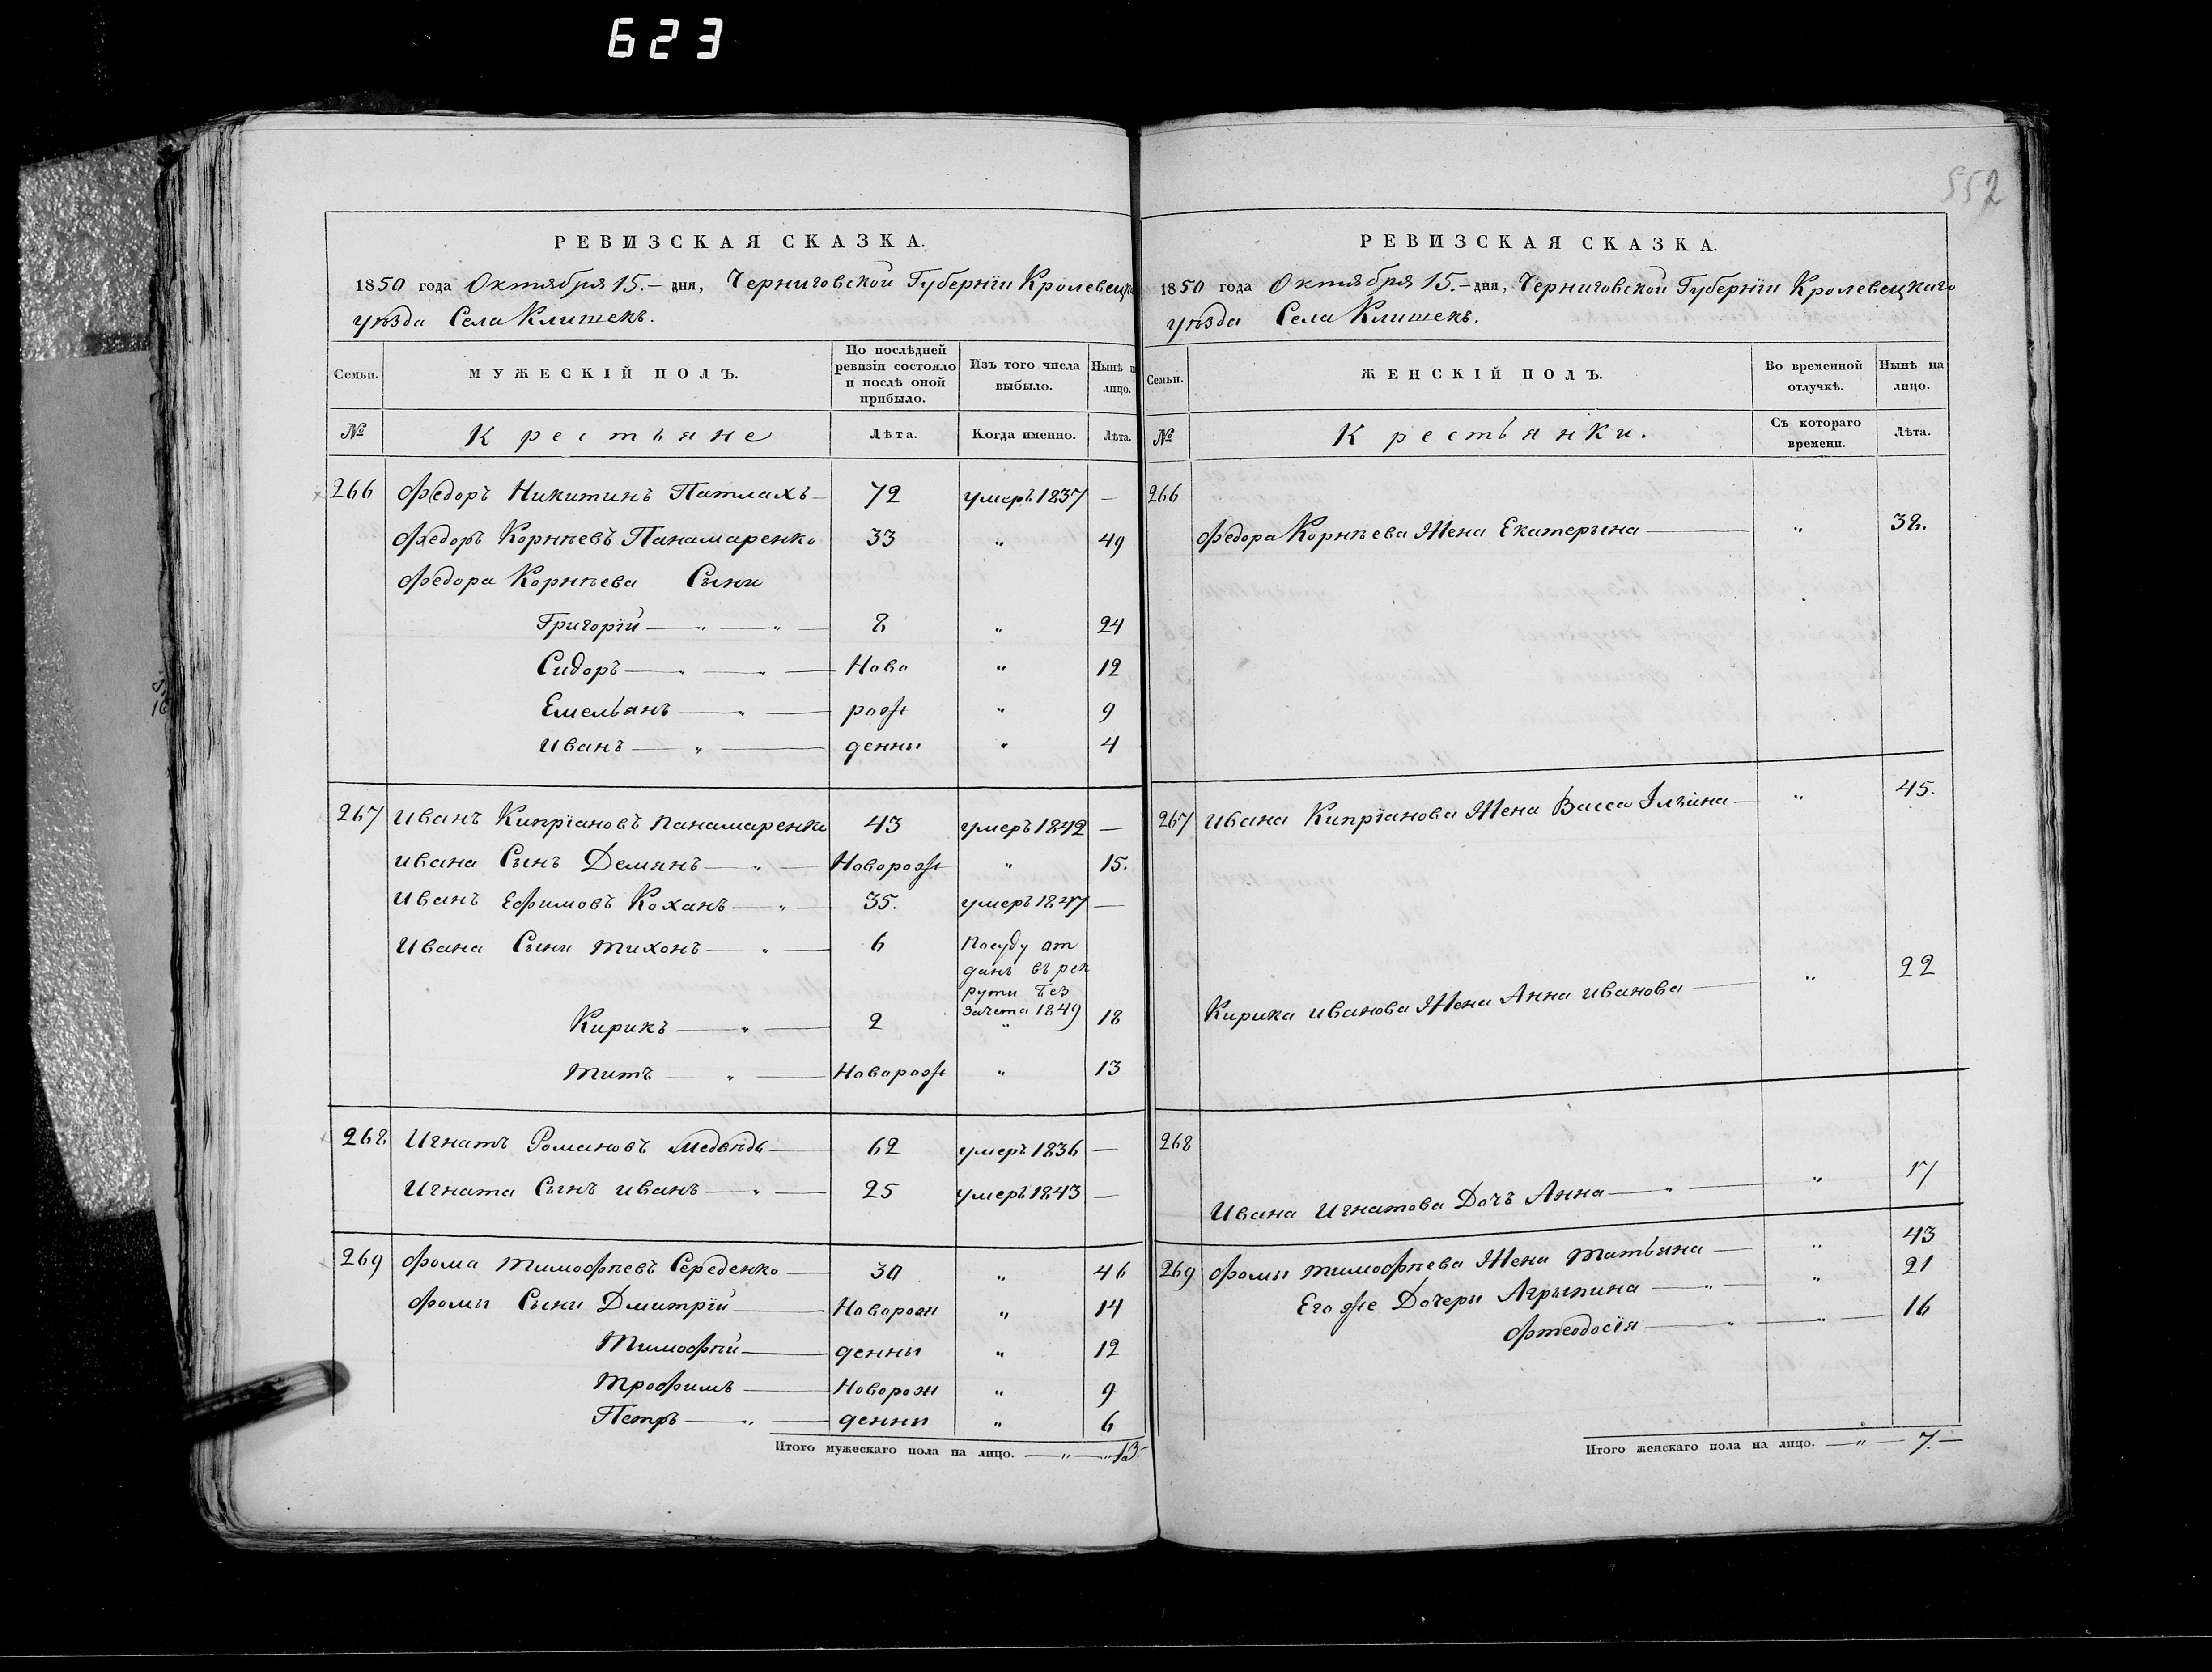 623
552
РЕВИЗСКАЯ СКАЗКА.
1850 года Октября 15.– дня, Черниговской Губерніи Кролевецка
уѣзда Села Клишекъ.
Семьи. МУЖЕСКІЙ ПОЛЪ. По послѣдней ревизіи состояло и послѣ оной прибыло. Изъ того числа выбыло. Нынѣ н лицо.
№ Крестьяне Лѣта. Когда именно. Лѣта.
266 Федоръ Никитинъ Патлахъ 72 умеръ 1837 —
Федоръ Корнѣевъ Панамаренко 33 " 49
Федора Корнѣева Сыны
Григорій — " — " 8 " 24
Сидоръ — " — " — Ново " 12
Емельянъ — " — рож " 9
Иванъ — " — денны " 4
267 Иванъ Кипріановъ Панамаренко 43 умеръ 1842 —
Ивана Сынъ Демянъ — " — Новорож " 15.
Иванъ Ефимовъ Коханъ — " — 35. умеръ 1847 —
Ивана Сыны Тихонъ — " — 6 Посуду от
данъ въ рек
руты без
зачета 1849
Кирикъ — " — 2 " 18
Титъ — " — Новорож " 13
268 Игнатъ Романовъ Медвѣдь — 62 умеръ 1836 —
Игната Сынъ Иванъ — " — 25 умеръ 1843 —
269 Фома Тимофѣевъ Середенко — 30 " 46
Фомы Сыны Дмитрій — Новорож " 14
Тимофѣй — денны " 12
Трофимъ — Новорож " 9
Петръ — " — денны " 6
Итого мужескаго пола на лицо. — " — " 13.
РЕВИЗСКАЯ СКАЗКА.
1850 года Октября 15.– дня, Черниговской Губерніи Кролевецкаго
уѣзда Села Клишекъ.
Семьи. ЖЕНСКІЙ ПОЛЪ. Во временной отлучкѣ. Нынѣ на лицо.
№ Крестьянки. Съ котораго времени. Лѣта.
266
Федора Корнѣева Жена Екатерына — " 38.
267 Ивана Кипріанова Жена Васса Ілгина — " 45.
Кирика Иванова Жена Анна Иванова — " 22
268
Ивана Игнатова Дочъ Анна — " — " 17
269 Фомы Тимофѣева Жена Татьяна — " 43
Его же Дочери Агрыпина — " — " 21
Фтеодосія — " — " — 16
Итого женскаго пола на лицо. — " — 7.—